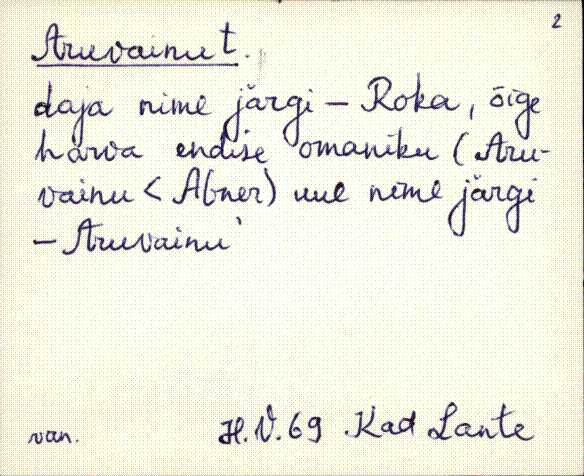 2
Aruvainu t.
daja nime järgi – Roka, õige
harva endise omaniku (Aru-
vainu < Abner) uue nime järgi
– Aruvainu'
van. H.V.69 Kad Lante